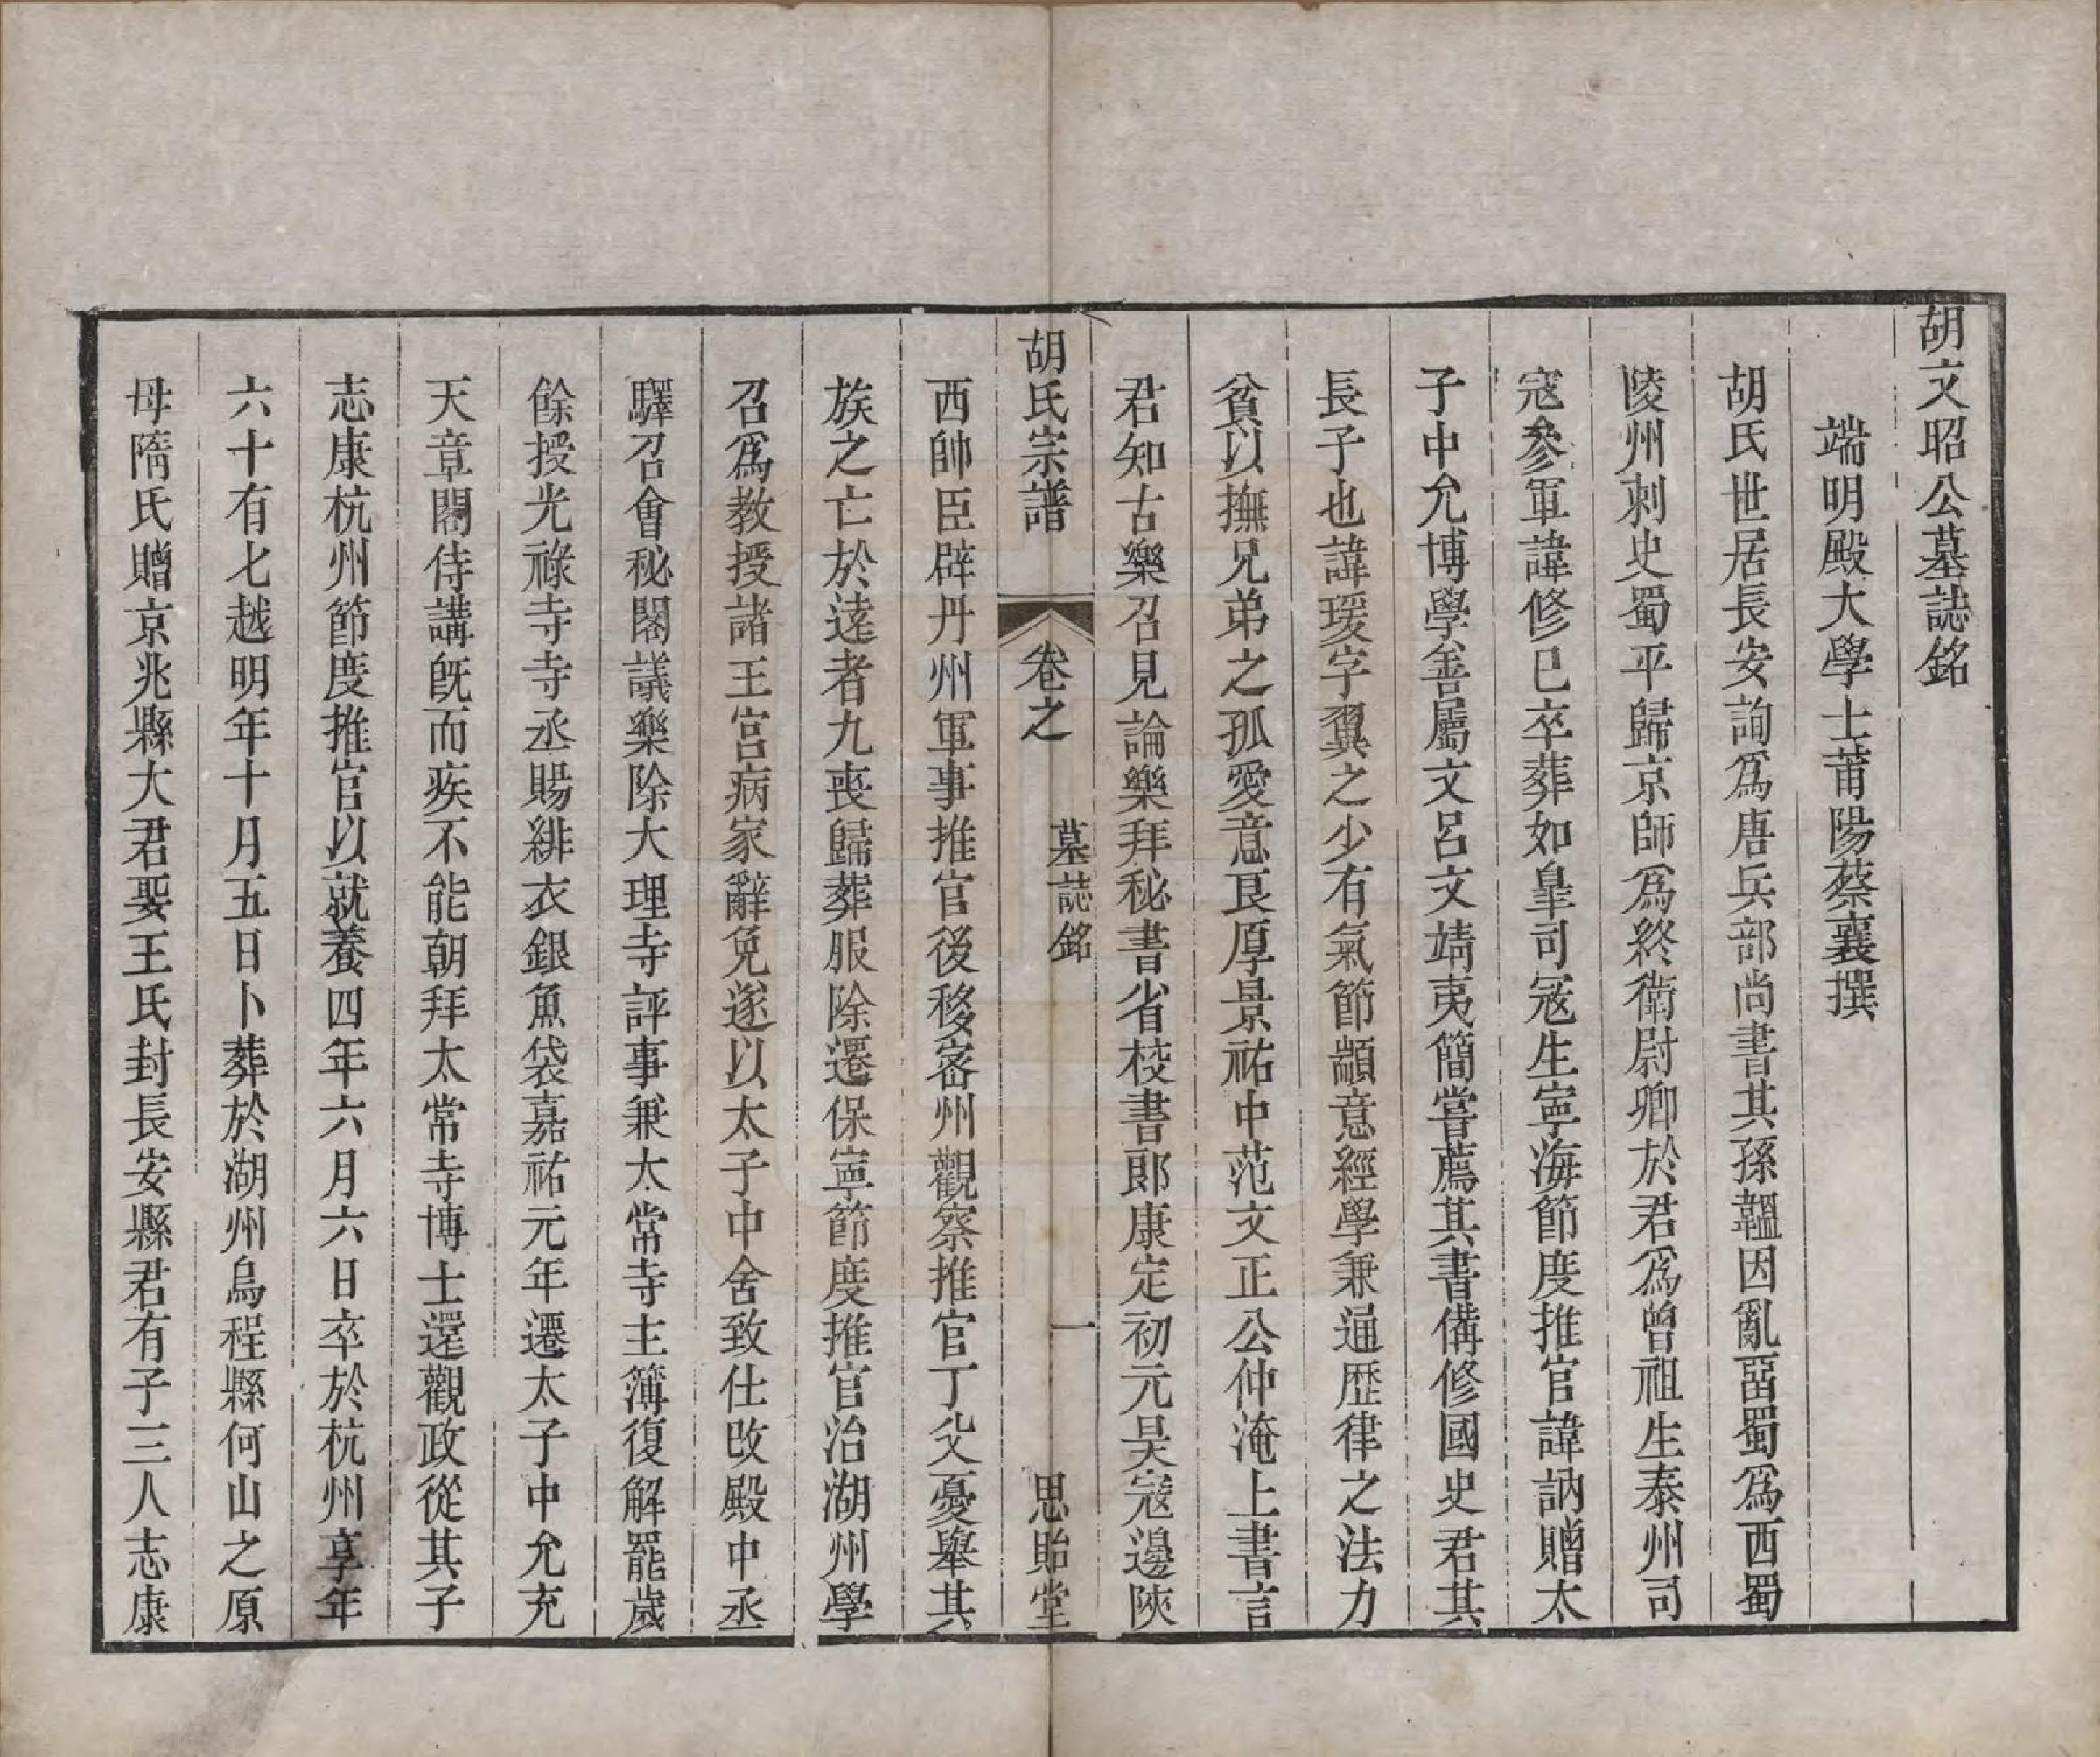 胡文昭公墓誌銘
端明殿大學士莆陽蔡襄撰
胡氏世居長安詢爲唐兵部尚書其孫韞因亂畱蜀爲西蜀
陵州刺史蜀平歸京師爲終衛尉卿於君爲曾祖生泰州司
寇參軍諱修已卒葬如臯司寇生寧海節度推官諱訥贈太
子中允博學善屬文呂文靖夷簡嘗薦其書偹修國史君其
長子也諱瑗字翼之少有氣節顓意經學兼通歴律之法力
貧以撫兄弟之孤愛意艮厚景祐中范文正公仲淹上書言
君知古樂召見論樂拜秘書省校書郎康定初元昊寇邊陝
胡氏宗譜 卷之 墓誌銘 一 思貽堂
西帥臣辟丹州軍事推官後移密州觀察推官丁父憂舉其
族之亡於逺者九喪歸葬服除遷保寧節度推官治湖州學
召爲教授諸王宮病家辭免遂以太子中舍致仕改殿中丞
驛召會秘閣議樂除大理寺評事兼太常寺主簿復解罷歲
餘授光祿寺寺丞賜緋衣銀魚袋嘉祐元年遷太子中允充
天章閣侍講旣而疾不能朝拜太常寺博士還觀政從其子
志康杭州節度推官以就養四年六月六日卒於杭州享年
六十有七越明年十月五日卜葬於湖州烏程縣何山之原
母隋氏贈京兆縣大君娶王氏封長安縣君有子三人志康